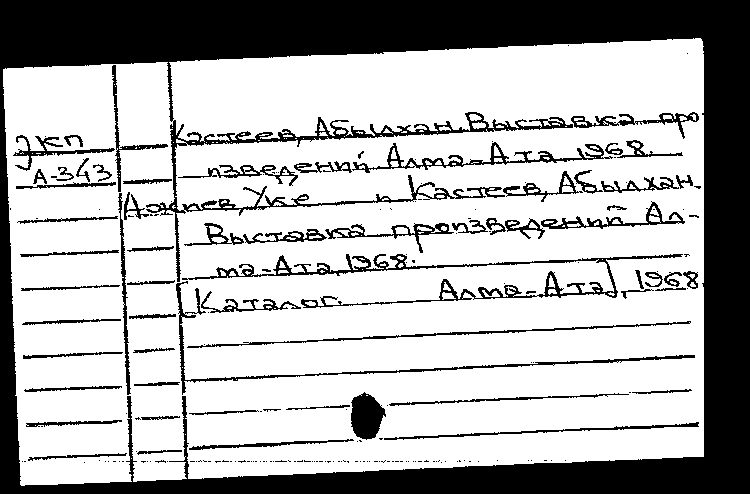 Кастеев, Абылхан. Выставка про-
ЭКП
изведений. Алма-Ата 1968.
А-343
Ажиев, Уке и Кастеев, Абылхан.
Выставка произведений. Ал-
ма-Ата, 1968.
[Каталог. Алма-Ата], 1968.